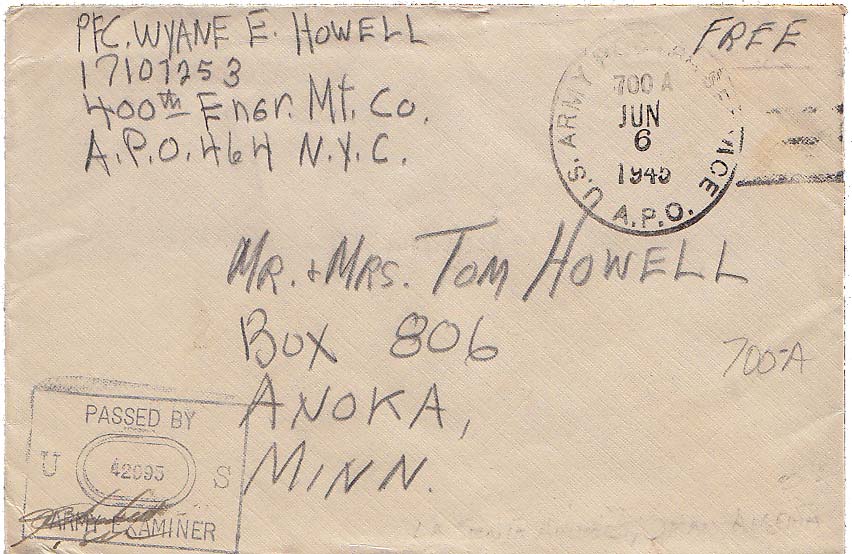 PFC. WYANE E. HOWELL
17107253
400th Engr. Mt. Co.
A.P.O. 464 N.Y.C.
FREE
U.S. ARMY POSTAL SERVICE
700 A
JUN
6
1945
A.P.O.
MR. + MRS. TOM HOWELL
BOX 806
ANOKA,
MINN.
700-A
PASSED BY
U 42095 S
ARMY EXAMINER